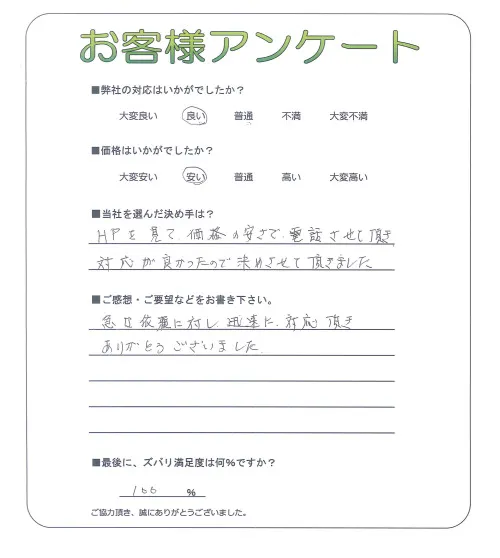 お客様アンケート
■弊社の対応はいかがでしたか？
大変良い 良い 普通 不満 大変不満
■価格はいかがでしたか？
大変安い 安い 普通 高い 大変高い
■当社を選んだ決め手は？
HPを見て、価格の安さで、電話させて頂き
対応が良かったので決めさせて頂きました
■ご感想・ご要望などをお書き下さい。
急な依頼に対し迅速に、対応頂き
ありがとうございました
■最後に、ズバリ満足度は何%ですか？
100 %
ご協力頂き、誠にありがとうございました。